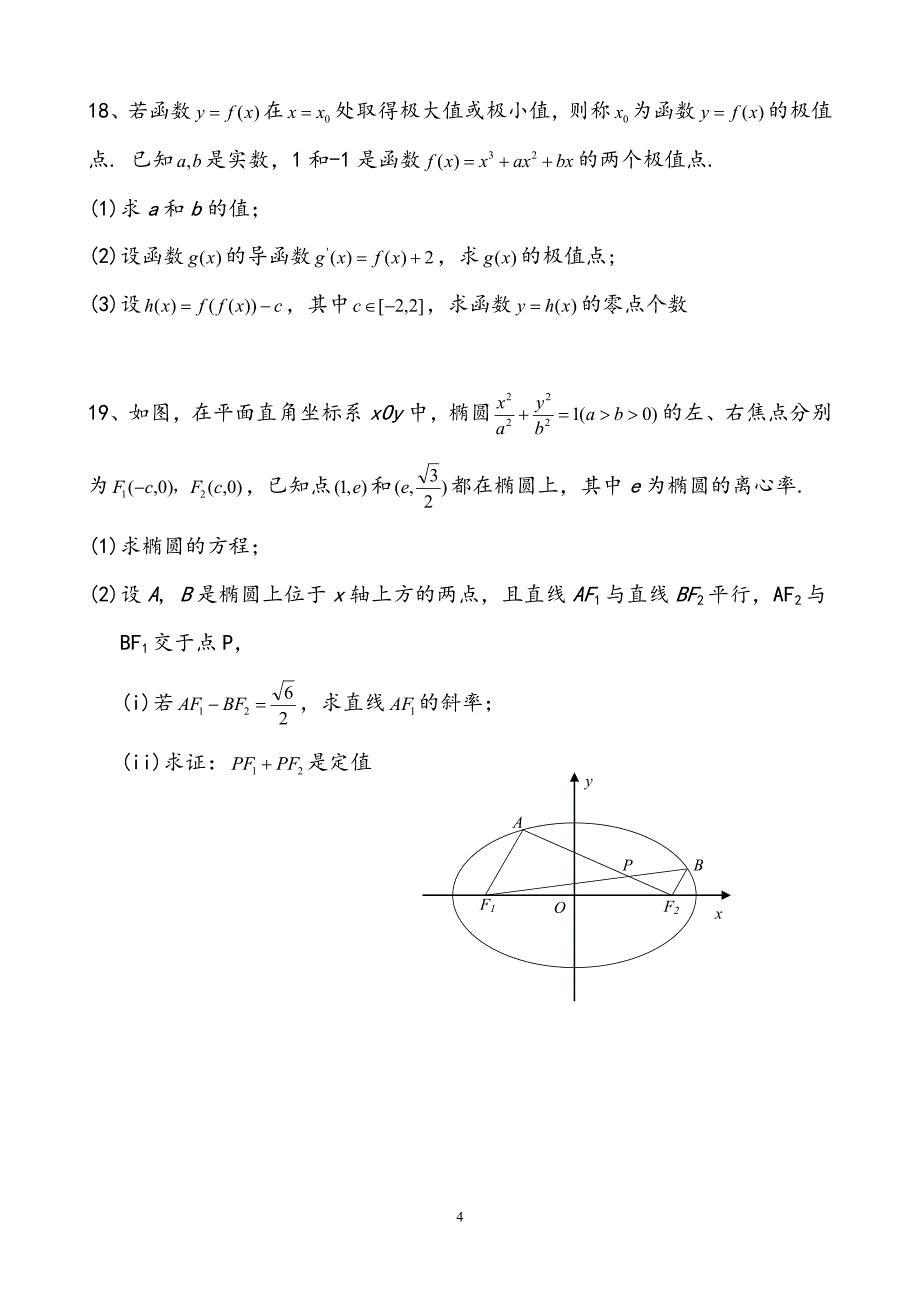 18、若函数 y = f(x) 在 x = x₀ 处取得极大值或极小值，则称 x₀ 为函数 y = f(x) 的极值
点. 已知 a,b 是实数，1 和-1 是函数 f(x) = x³ + ax² + bx 的两个极值点.
(1)求 a 和 b 的值；
(2)设函数 g(x) 的导函数 g'(x) = f(x) + 2，求 g(x) 的极值点；
(3)设 h(x) = f(f(x)) − c，其中 c∈[−2,2]，求函数 y = h(x) 的零点个数
19、如图，在平面直角坐标系 xOy 中，椭圆 x²/a² + y²/b² = 1(a > b > 0) 的左、右焦点分别
为 F₁(−c,0)，F₂(c,0)，已知点 (1,e) 和 (e,√3/2) 都在椭圆上，其中 e 为椭圆的离心率.
(1)求椭圆的方程；
(2)设 A，B 是椭圆上位于 x 轴上方的两点，且直线 AF₁ 与直线 BF₂ 平行，AF₂ 与
BF₁ 交于点 P，
(i)若 AF₁ − BF₂ = √6/2，求直线 AF₁ 的斜率；
(ii)求证：PF₁ + PF₂ 是定值
y
A
P
B
F₁
O
F₂
x
4